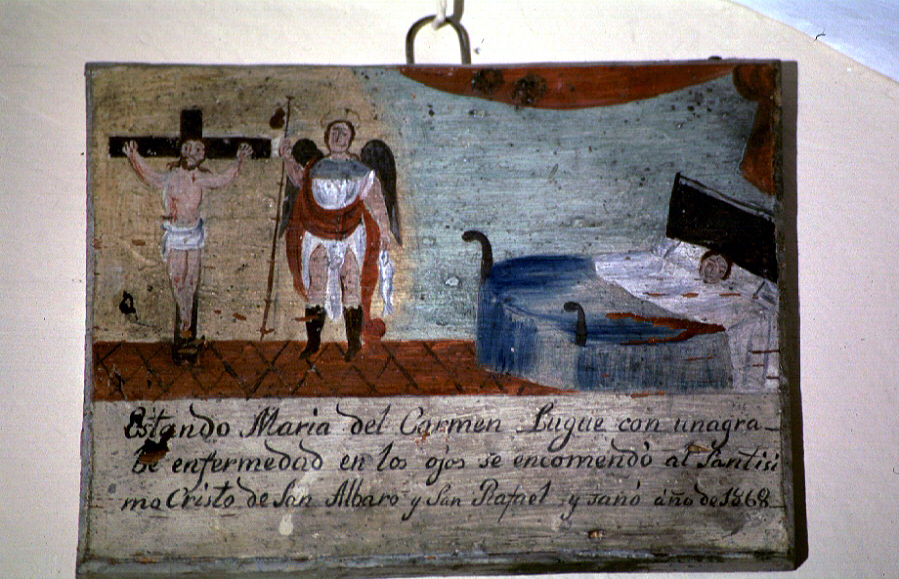 Estando Maria del Carmen Lugue con unagra_
be enfermedad en los ojos se encomendò al Santisi
mo Cristo de San Albaro y San Rafael y sanó año de 1868